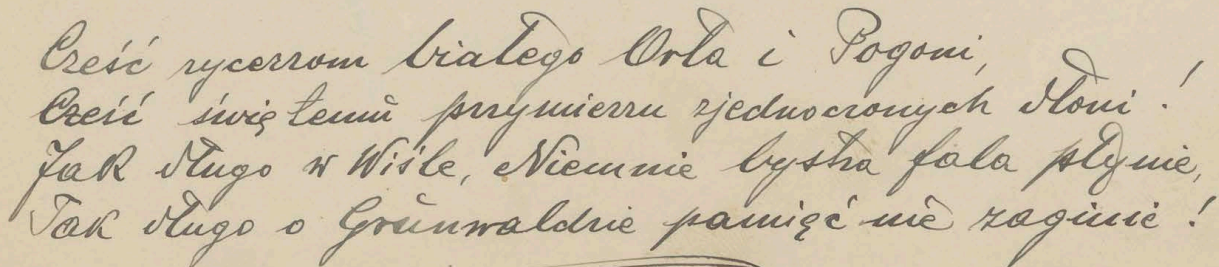 Cześć rycerzom białego Orła i Pogoni,
Cześć świętemu przymierzu zjednoczonych dłoni!
Jak długo w Wiśle, Niemnie bystra fala płynie,
Tak długo o Grünwaldzie pamięć nie zaginie!